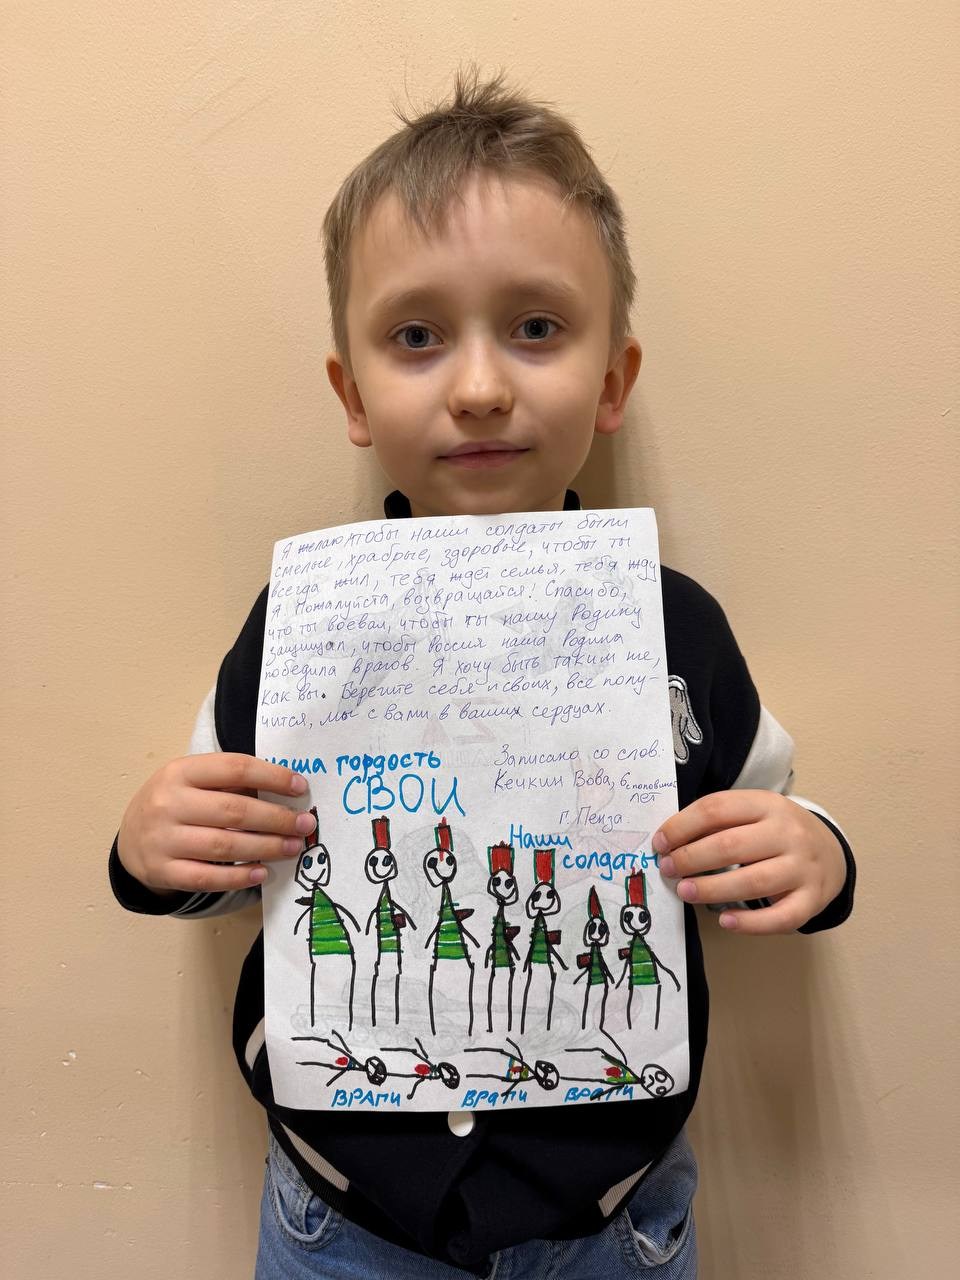 Я желаю чтобы наши солдаты были
смелые, храбрые, здоровые, чтобы ты
всегда жил, тебя ждёт семья, тебя жду
я. Пожалуйста, возвращайся! Спасибо,
что ты воевал, чтобы ты нашу Родину
защищал, чтобы Россия наша Родина
победила врагов. Я хочу быть таким же,
как вы. Берегите себя и своих, все полу-
чится, мы с вами в ваших сердцах.
Записано со слов:
Кечкин Вова, 6 с половиной
лет
г. Пенза.
наша гордость
СВОИ
Наши
солдаты
ВРАГИ
враги
враги